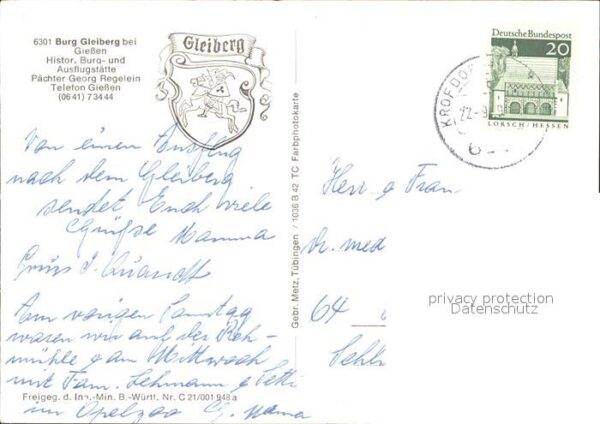 6301 Burg Gleiberg bei
Gießen
Histor. Burg- und
Ausflugstätte
Pächter Georg Regelein
Telefon Gießen
(0641) 73444
Gleiberg
Deutsche Bundespost
20
LORSCH/HESSEN
KROFDO
22.-9.
Von einen Ausflug
nach dem Gleiberg
sendet Euch viele
Grüße Mamma
Gruss
Am vorigen Samstag
waren wir auf der Reh-
mühle & am Mittwoch
mit Fam. Lehmann & Setti
im Opelzoo
Freigeg. d. Inn.-Min. B.-Württ. Nr. C 21/001 948 a
Gebr. Metz, Tübingen / 1036 B 42 TC Farbphotokarte
Herr & Frau
Dr. med
64
privacy protection
Datenschutz